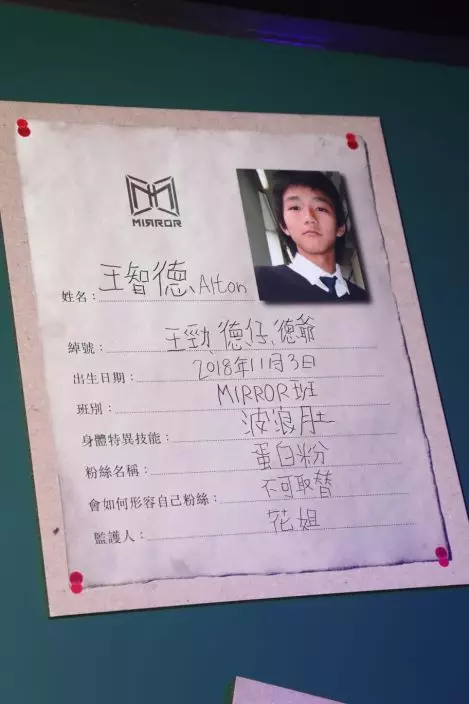 MIRROR
姓名：王智德、Alton
綽號：王勁、德仔、德爺
出生日期：2018年11月3日
班別：MIRROR班
身體特異技能：波浪肚
粉絲名稱：蛋白粉
會如何形容自己粉絲：不可取替
監護人：花姐